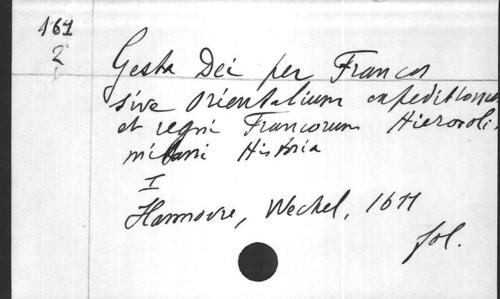 161
2
Gesta Dei per Francos
sive Orientalium expeditionum
et regni Francorum Hierosoli
mitani Historia
I
Hannovre, Wechel, 1611
fol.